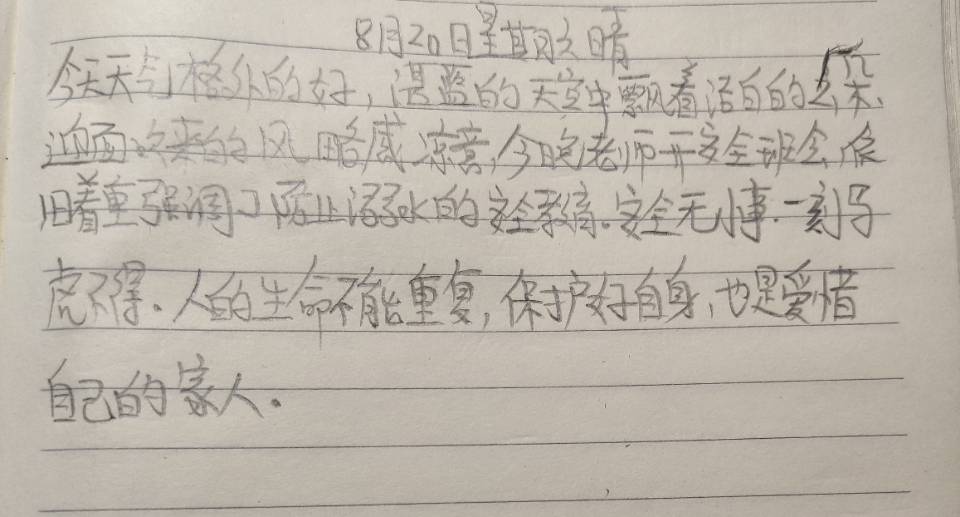 8月20日星期六晴
今天天气格外的好,湛蓝的天空中飘着洁白的云朵.
迎面吹来的风略感凉意,今晚老师开安全班会,依
旧着重强调了防止溺水的安全教育.安全无小事.一刻马
虎不得.人的生命不能重复,保护好自身,也是爱惜
自己的家人.